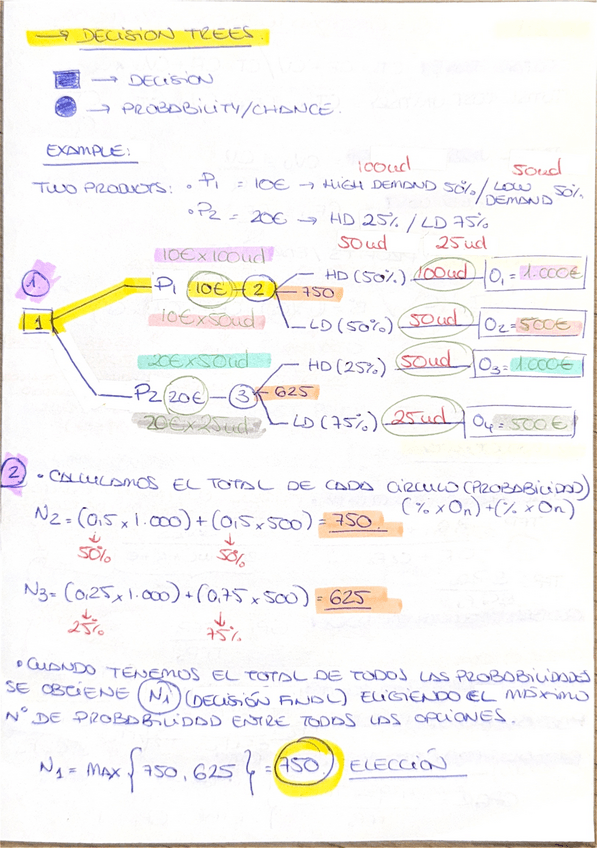 → DECISION TREES.
→ DECISION
→ PROBABILITY/CHANCE.
EXAMPLE:
100ud 50ud
TWO PRODUCTS: • P1 = 10€ → HIGH DEMAND 50% / LOW DEMAND 50%
• P2 = 20€ → HD 25% / LD 75%
50ud 25ud
10€x100ud
1. P1 10€ 2 HD (50%) 100ud O1 = 1.000€
1 750
10€x50ud LD (50%) 50ud O2 = 500€
20€x50ud HD (25%) 50ud O3 = 1.000€
P2 20€ 3 625
20€x25ud LD (75%) 25ud O4 = 500€
2 • CALCULAMOS EL TOTAL DE CADA CIRCULO (PROBABILIDAD)
(% x On) + (% x On)
N2 = (0,5 x 1.000) + (0,5 x 500) = 750.
↓ ↓
50% 50%
N3 = (0,25 x 1.000) + (0,75 x 500) = 625
↓ ↓
25% 75%
• CUANDO TENEMOS EL TOTAL DE TODOS LAS PROBABILIDADES
SE OBTIENE N1 (DECISIÓN FINAL) ELIGIENDO EL MÁXIMO
Nº DE PROBABILIDAD ENTRE TODAS LAS OPCIONES.
N1 = MAX { 750, 625 } = 750. ELECCIÓN